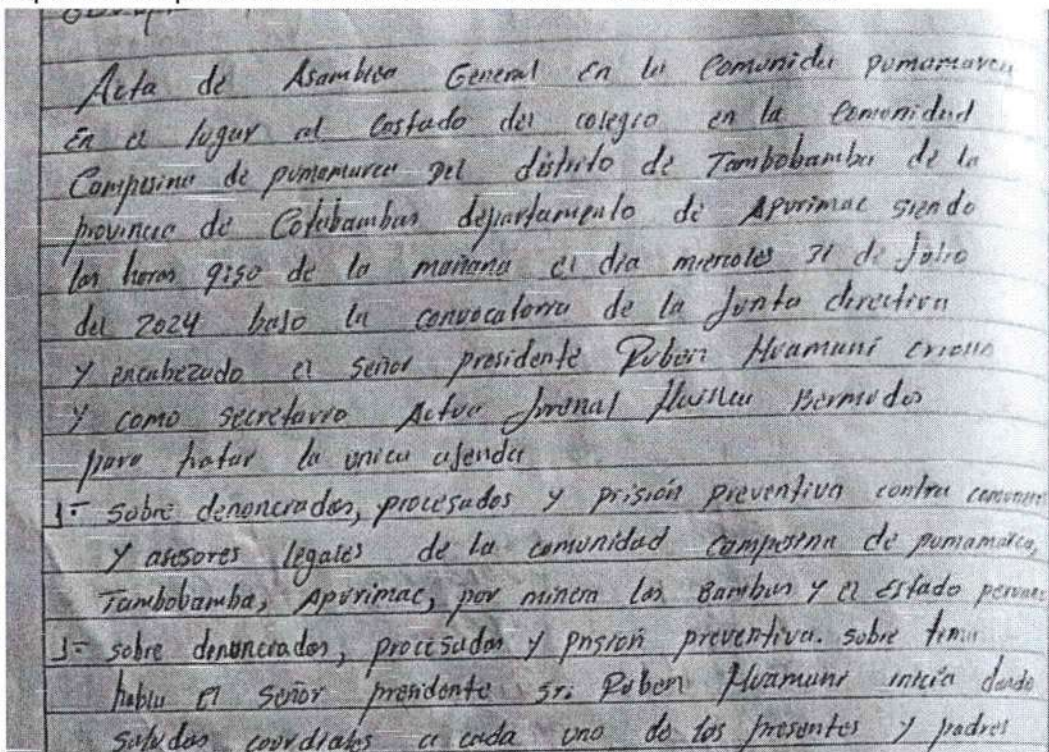 Acta de Asamblea General en la Comunidu pumamarca
En el lugar al Costado del colegio en la Comunidad
Campesina de pumamarca del distrito de Tambobamba de la
provincia de Cotabambas departamento de Apurimac siendo
las horas 9:50 de la mañana el dia miercoles 31 de Julio
del 2024 bajo la convocatoria de la Junta directiva
y encabezado el Señor presidente Ruben Huamani
y como secretario Actuo Huillca Bermudos
para tratar la unica agenda
1:- Sobre denunciados, procesados y prisión preventiva contra
y asesores legales de la comunidad campesina de pumamarca,
Tambobamba, Apurimac, por minera las Bambas y el estado
1:- sobre denunciados, procesados y prisión preventiva. sobre tema
habla El Señor presidente Sr. Ruben Huamani inicia dando
Saludos cordiales a cada uno de los presentes y padres